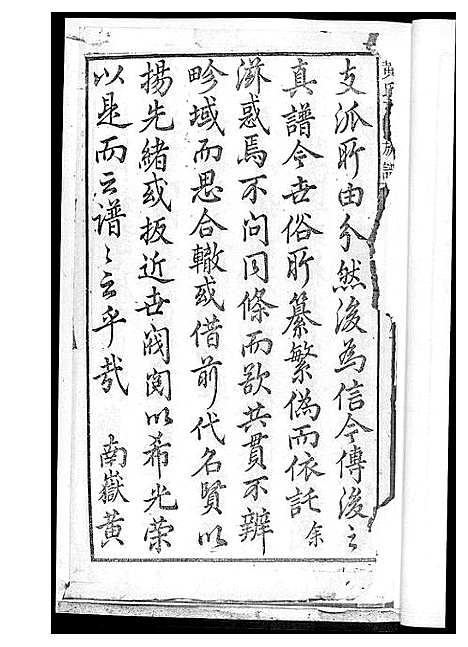 支派所由分然後為信今傳後之
真譜今世俗所纂繁偽而依託余
滋惑焉不問同條而欲共貫不辨
畛域而思合轍或借前代名賢以
揚先緒或扳近世閥閱以希光榮
以是而云譜譜云乎哉 南嶽黃